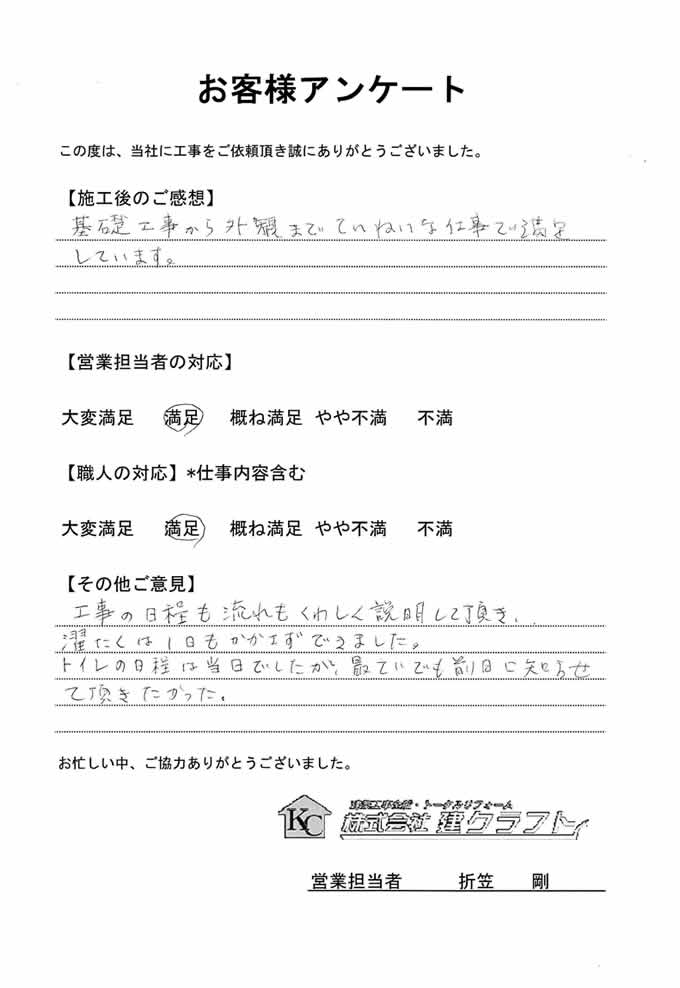 お客様アンケート
この度は、当社に工事をご依頼頂き誠にありがとうございました。
【施工後のご感想】
基礎工事から外観までていねいな仕事で満足
しています。
【営業担当者の対応】
大変満足 満足 概ね満足 やや不満 不満
【職人の対応】*仕事内容含む
大変満足 満足 概ね満足 やや不満 不満
【その他ご意見】
工事の日程も流れもくわしく説明して頂き、
濯たくは1日もかかさずできました。
トイレの日程は当日でしたが、最ていでも前日に知らせ
て頂きたかった。
お忙しい中、ご協力ありがとうございました。
KC
・トータルリフォーム
株式会社 建クラフト
営業担当者 折笠 剛